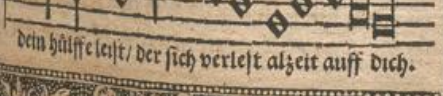 dein hülffe leist/ der sich verlest alzeit auff dich.